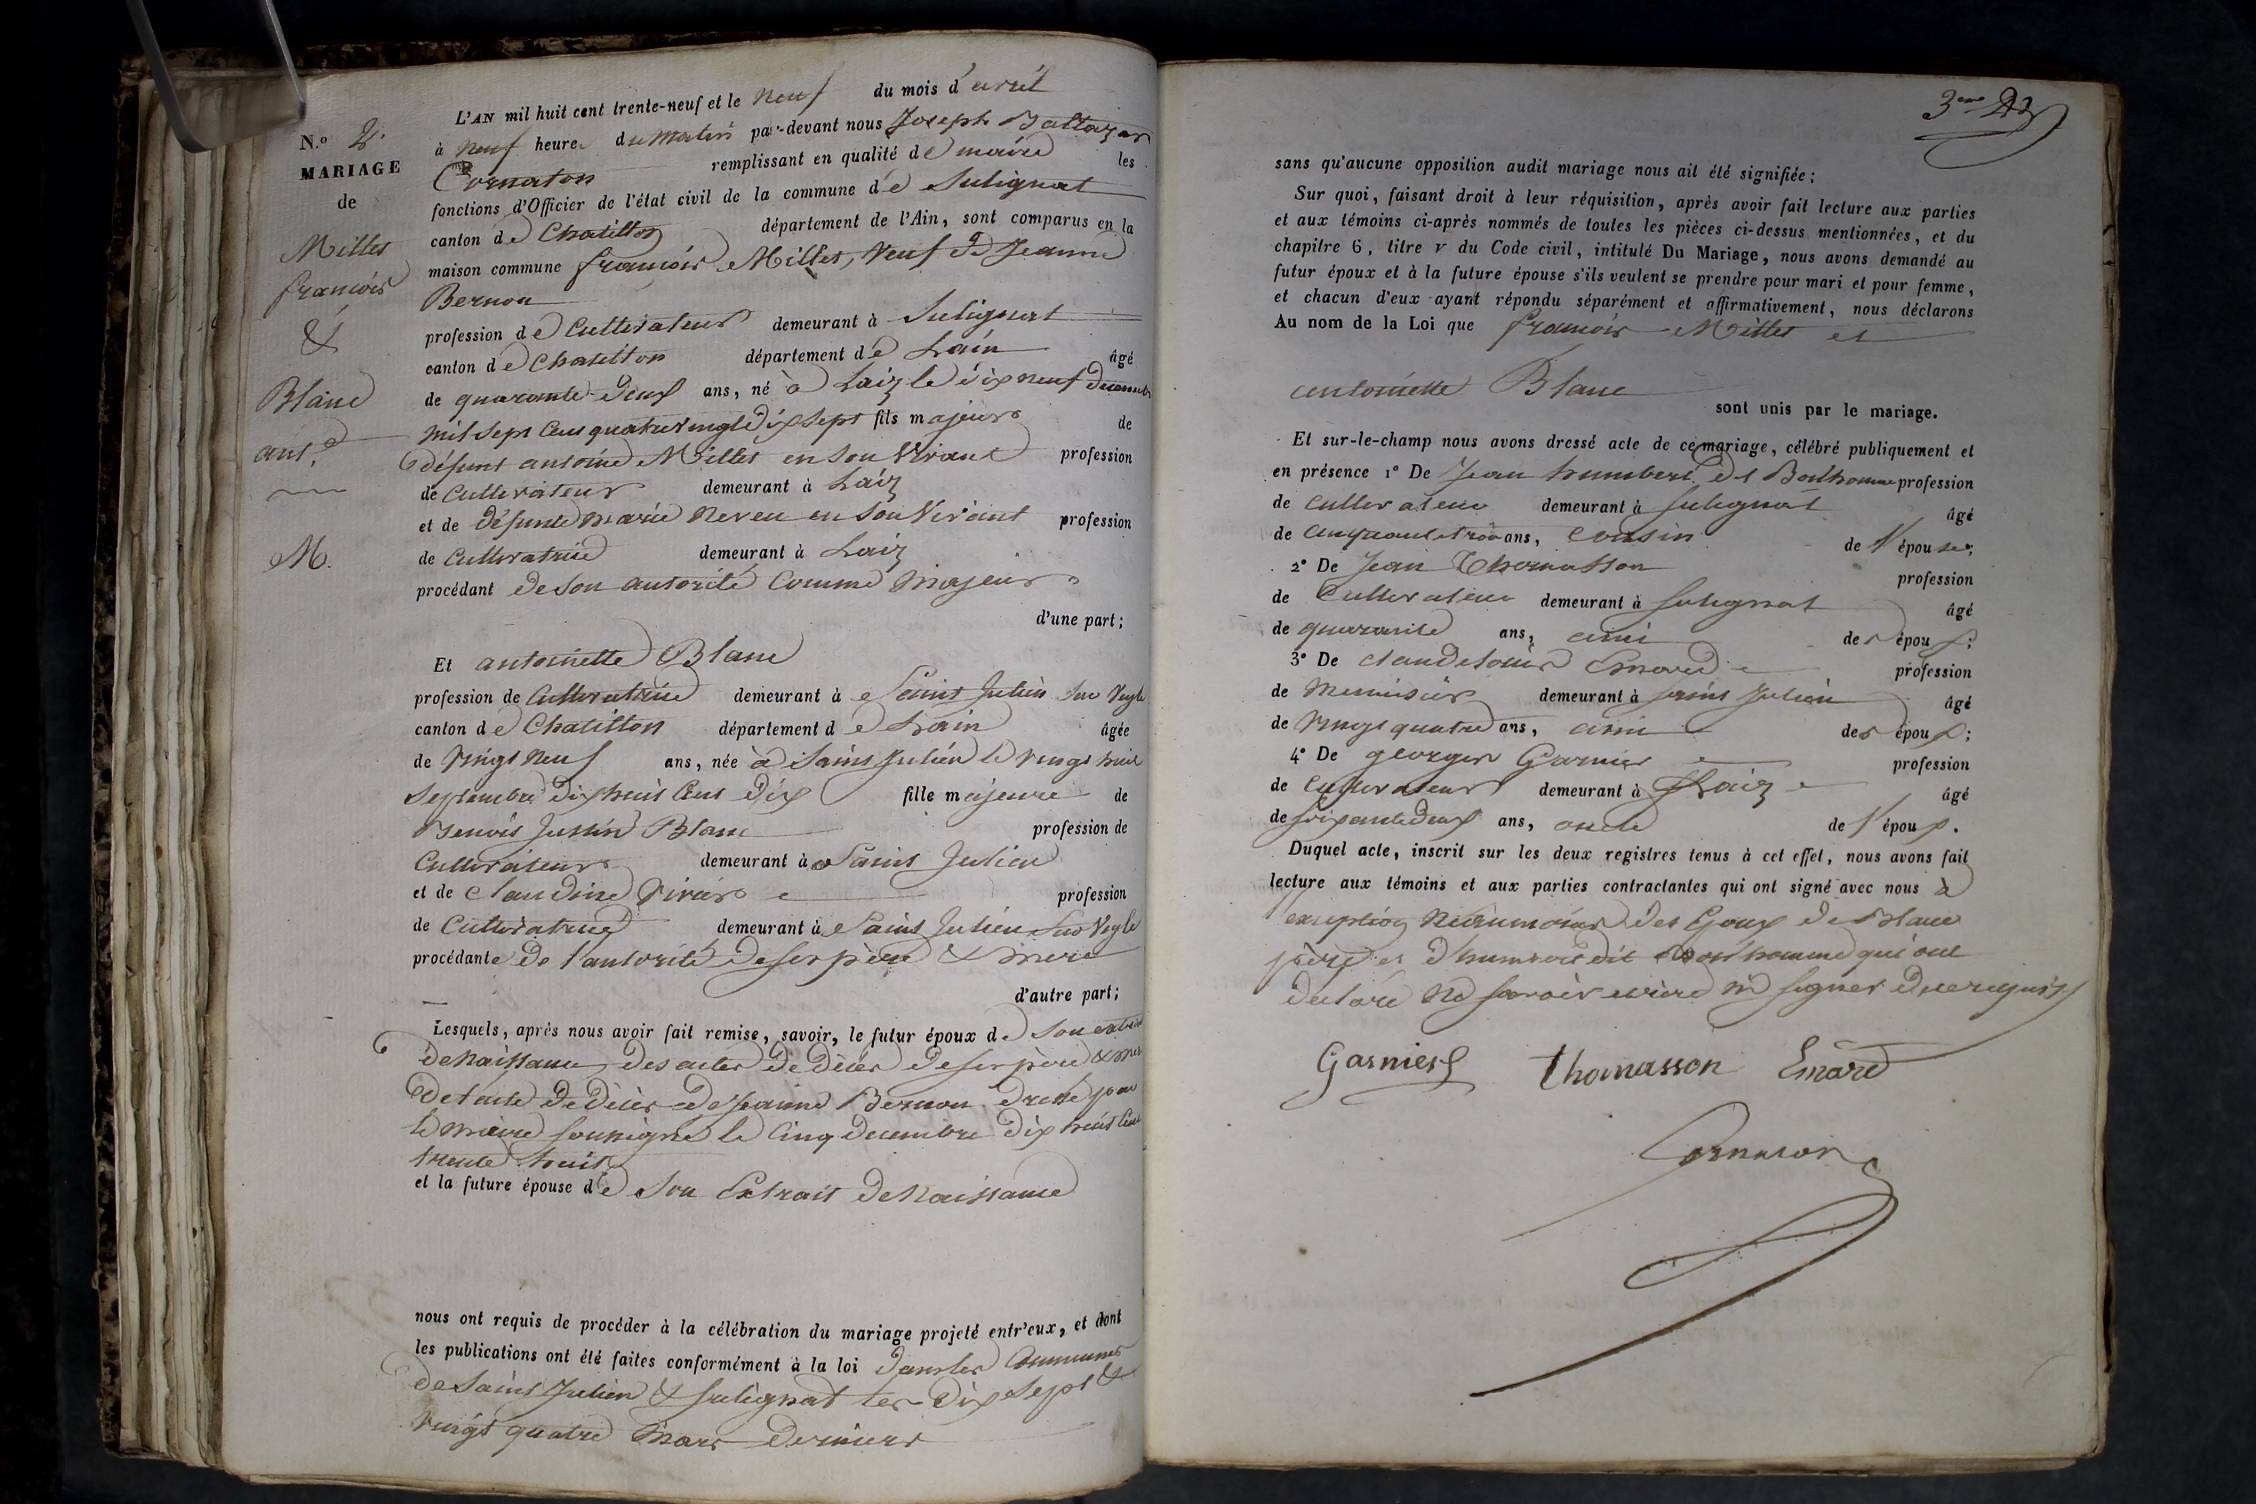 N.o 2.
MARIAGE
de
Milles
francois
&
Blanc
ant.e
M.
L'AN mil huit cent trente-neuf et le neuf du mois d'avril
à neuf heures du matin par-devant nous Joseph Baltazar
Cornaton remplissant en qualité de maire les
fonctions d'Officier de l'état civil de la commune de Sulignat
canton de Chatillon département de l'Ain, sont comparus en la
maison commune francois Milles, veuf de Jeanne
Bernou
profession de Cultivateur demeurant à Sulignat
canton de Chatillon département de Lain âgé
de quarante deux ans, né à Laiz le dix neuf Decembre
mil sept cent quatrevingt dix sept fils majeur de
défunt antoine Milles en son vivant profession
de Cultivateur demeurant à Laiz
et de défunte marie neveu en son vivant profession
de Cultivatrice demeurant à Laiz
procédant de son autorité comme majeur
d'une part;
Et antoinette Blanc
profession de Cultivatrice demeurant à Saint Julien sur Veyle
canton de Chatillon département de Lain âgée
de vingt neuf ans, née à Saint Julien le vingt huit
Septembre dix huit cent dix fille majeure de
Benoit Justin Blanc profession de
Cultivateur demeurant à Saint Julien
et de claudine profession
de Cultivatrice demeurant à Saint Julien sur Veyle
procédante de l'autorité de ses père & mere
d'autre part;
Lesquels, après nous avoir fait remise, savoir, le futur époux de son extrait
de naissance, des actes de décès de ses père & mere
de l'acte de décès de Jeanne Bernou dressé par
le maire soussigné le cinq decembre dix huit cent
trente huit
et la future épouse de son Extrait de naissance
nous ont requis de procéder à la célébration du mariage projeté entr'eux, et dont
les publications ont été faites conformément à la loi dans les Communes
de Saint Julien & Sulignat les dix sept &
vingt quatre mars derniers
3eme
sans qu'aucune opposition audit mariage nous ait été signifiée;
Sur quoi, faisant droit à leur réquisition, après avoir fait lecture aux parties
et aux témoins ci-après nommés de toutes les pièces ci-dessus mentionnées, et du
chapitre 6, titre v du Code civil, intitulé Du Mariage, nous avons demandé au
futur époux et à la future épouse s'ils veulent se prendre pour mari et pour femme,
et chacun d'eux ayant répondu séparément et affirmativement, nous déclarons
Au nom de la Loi que francois Milles et
antoinette Blanc
sont unis par le mariage.
Et sur-le-champ nous avons dressé acte de ce mariage, célébré publiquement et
en présence 1° De Jean humbert dit Bonhomme profession
de cultivateur demeurant à Sulignat âgé
de cinquante trois ans, cousin de l'épouse;
2° De Jean Thomasson profession
de Cultivateur demeurant à Sulignat âgé
de quarante ans, ami des époux;
3° De claude louis Emard profession
de Menuisier demeurant à Saint Julien âgé
de vingt quatre ans, ami des époux;
4° De georges Garnier profession
de Cultivateur demeurant à Laiz âgé
de soixante deux ans, oncle de l'époux.
Duquel acte, inscrit sur les deux registres tenus à cet effet, nous avons fait
lecture aux témoins et aux parties contractantes qui ont signé avec nous à
exception néanmoins des Epoux de Blanc
père et d'humbert dit Bonhomme qui ont
declaré ne savoir écrire ni signer de ce requis
Garnier Thomasson Emard
Cornaton